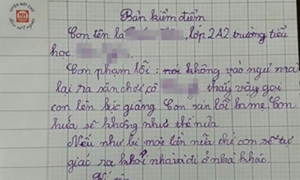 Bản kiểm điểm
Con tên là, lớp 2A2 trường tiểu
học
Con phạm lỗi: nói không vào ngủ mà
lại ra sân chơi cô thấy vậy gọi
con lên bục giảng. Con xin lỗi ba mẹ. Con
hứa sẽ không như thế nữa
Nếu như bị mời lần nữa thì con sẽ tự
giác ra khỏi nhà và đi ở nhà khác.